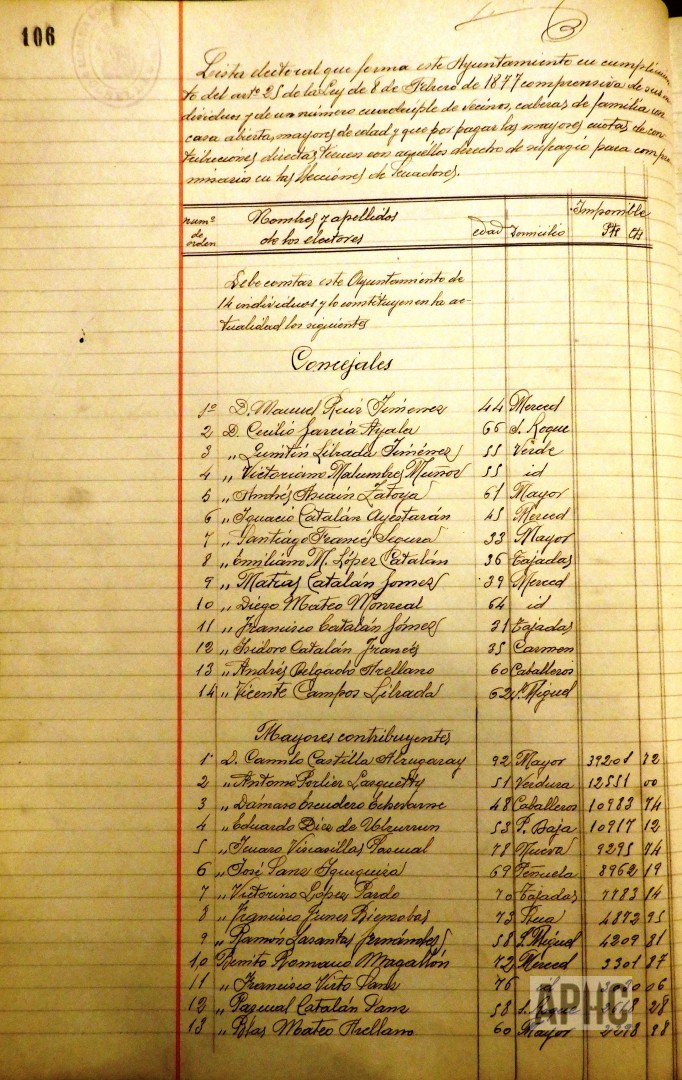 106
Lista electoral que forma este Ayuntamiento en cumplimien
to del artº 25 de la Ley de 8 de Febrero de 1877 comprensiva de sus in
dividuos y de un número cuadruple de vecinos, cabezas de familia con
casa abierta, mayores de edad y que por pagar las mayores cuotas de con
tribuciones directas tienen con aquéllos derecho de sufragio para compro
misarios en las Secciones de Senadores.
numº de orden Nombres y apellidos de los electores edad Domicilio Imponible Pts Cts
Debe constar este Ayuntamiento de
14 individuos y lo constituyen en la ac-
tualidad los siguientes
Concejales
1º D. Manuel Ruiz Jimenez 44 Merced
2 D. Cecilio García Ayala 66 S. Roque
3 „ Librada Jiménez 55 Verde
4 „ Victoriano Malumbres Muñoz 55 id
5 „ Andrés Ansain Zatoya 61 Mayor
6 „ Ignacio Catalán Ayestarán 45 Merced
7 „ Santiago Francés Segura 33 Mayor
8 „ Emiliano M. López Catalán 36 Tajadas
9 „ Matías Catalán Gomez 39 Merced
10 „ Diego Mateo Monreal 64 id
11 „ Francisco Catalán Gómez 31 Tajadas
12 „ Isidoro Catalán Francés 35 Carmen
13 „ Andrés Delgado Arellano 60 Caballeros
14 „ Vicente Campos Librada 62 S. Miguel
Mayores contribuyentes
1º D. Camilo Castilla Alzugaray 92 Mayor 39201 72
2 „ Antonio Perlier Lasquetty 51 Verdura 12551 00
3 „ Dámaso Escudero Echevarne 48 Caballeros 10983 74
4 „ Eduardo Diez de Ulzurrun 53 P. Baja 10917 12
5 „ Viscasillas Pascual 78 Nueva 9295 74
6 „ José Sanz 69 Peñuela 8962 19
7 „ Victorino López Pardo 70 Tajadas 7783 84
8 „ Francisco Funes Rienzobas 73 Rua 4872 95
9 „ Ramón Lasantas Fernández 58 S. Miguel 4209 81
10 Benito Romano Magallón 72 Merced 3301 87
11 „ Francisco Virto Sanz 76 06
12 „ Pascual Catalán Sanz 58 28
13 „ Blas Mateo Arellano 60 Mayor
APHC